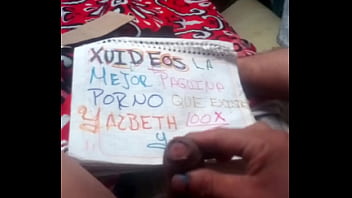 XUIDEOS LA
MEJOR PAGUINA
PORNO QUE EXISTE
Y AZBETH 100X
Y